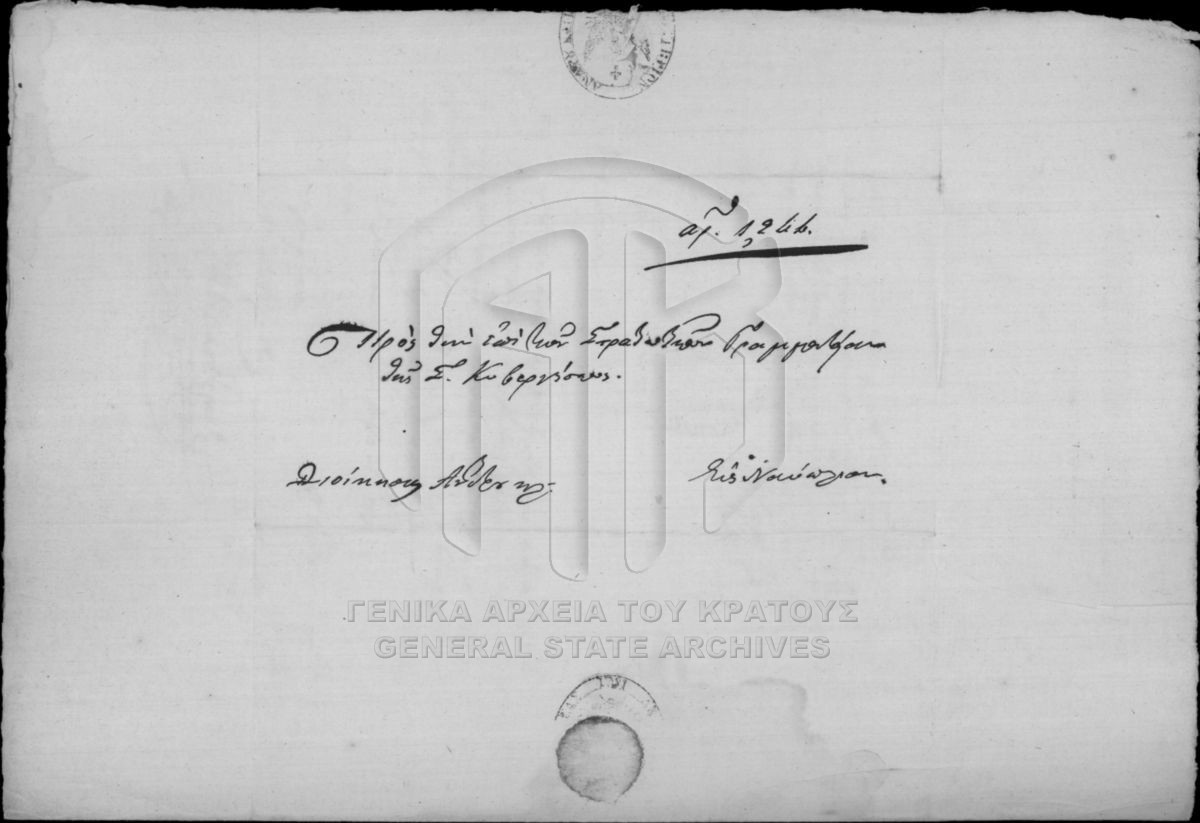 ἀρ. 1244.
Πρὸς τὴν ἐπὶ τῶν Στρατιωτικῶν Γραμματείαν
τῆς Σ. Κυβερνήσεως.
Διοίκησις Ἄνδρου κλ:
Εἰς Ναύπλιον.
ΓΕΝΙΚΑ ΑΡΧΕΙΑ ΤΟΥ ΚΡΑΤΟΥΣ
GENERAL STATE ARCHIVES